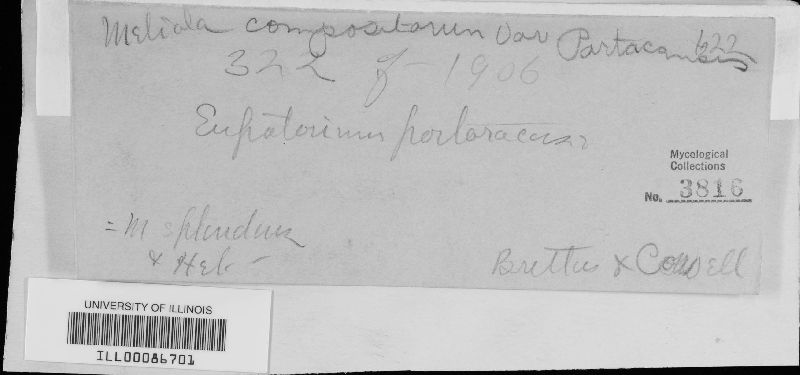 Meliola compositarum var Portoricensis 622
322 f - 1906
Eupatorium portoricense
Mycological
Collections
No. 3816
= M splendens
& Heb -
Britton & Cowell
UNIVERSITY OF ILLINOIS
ILL00086701